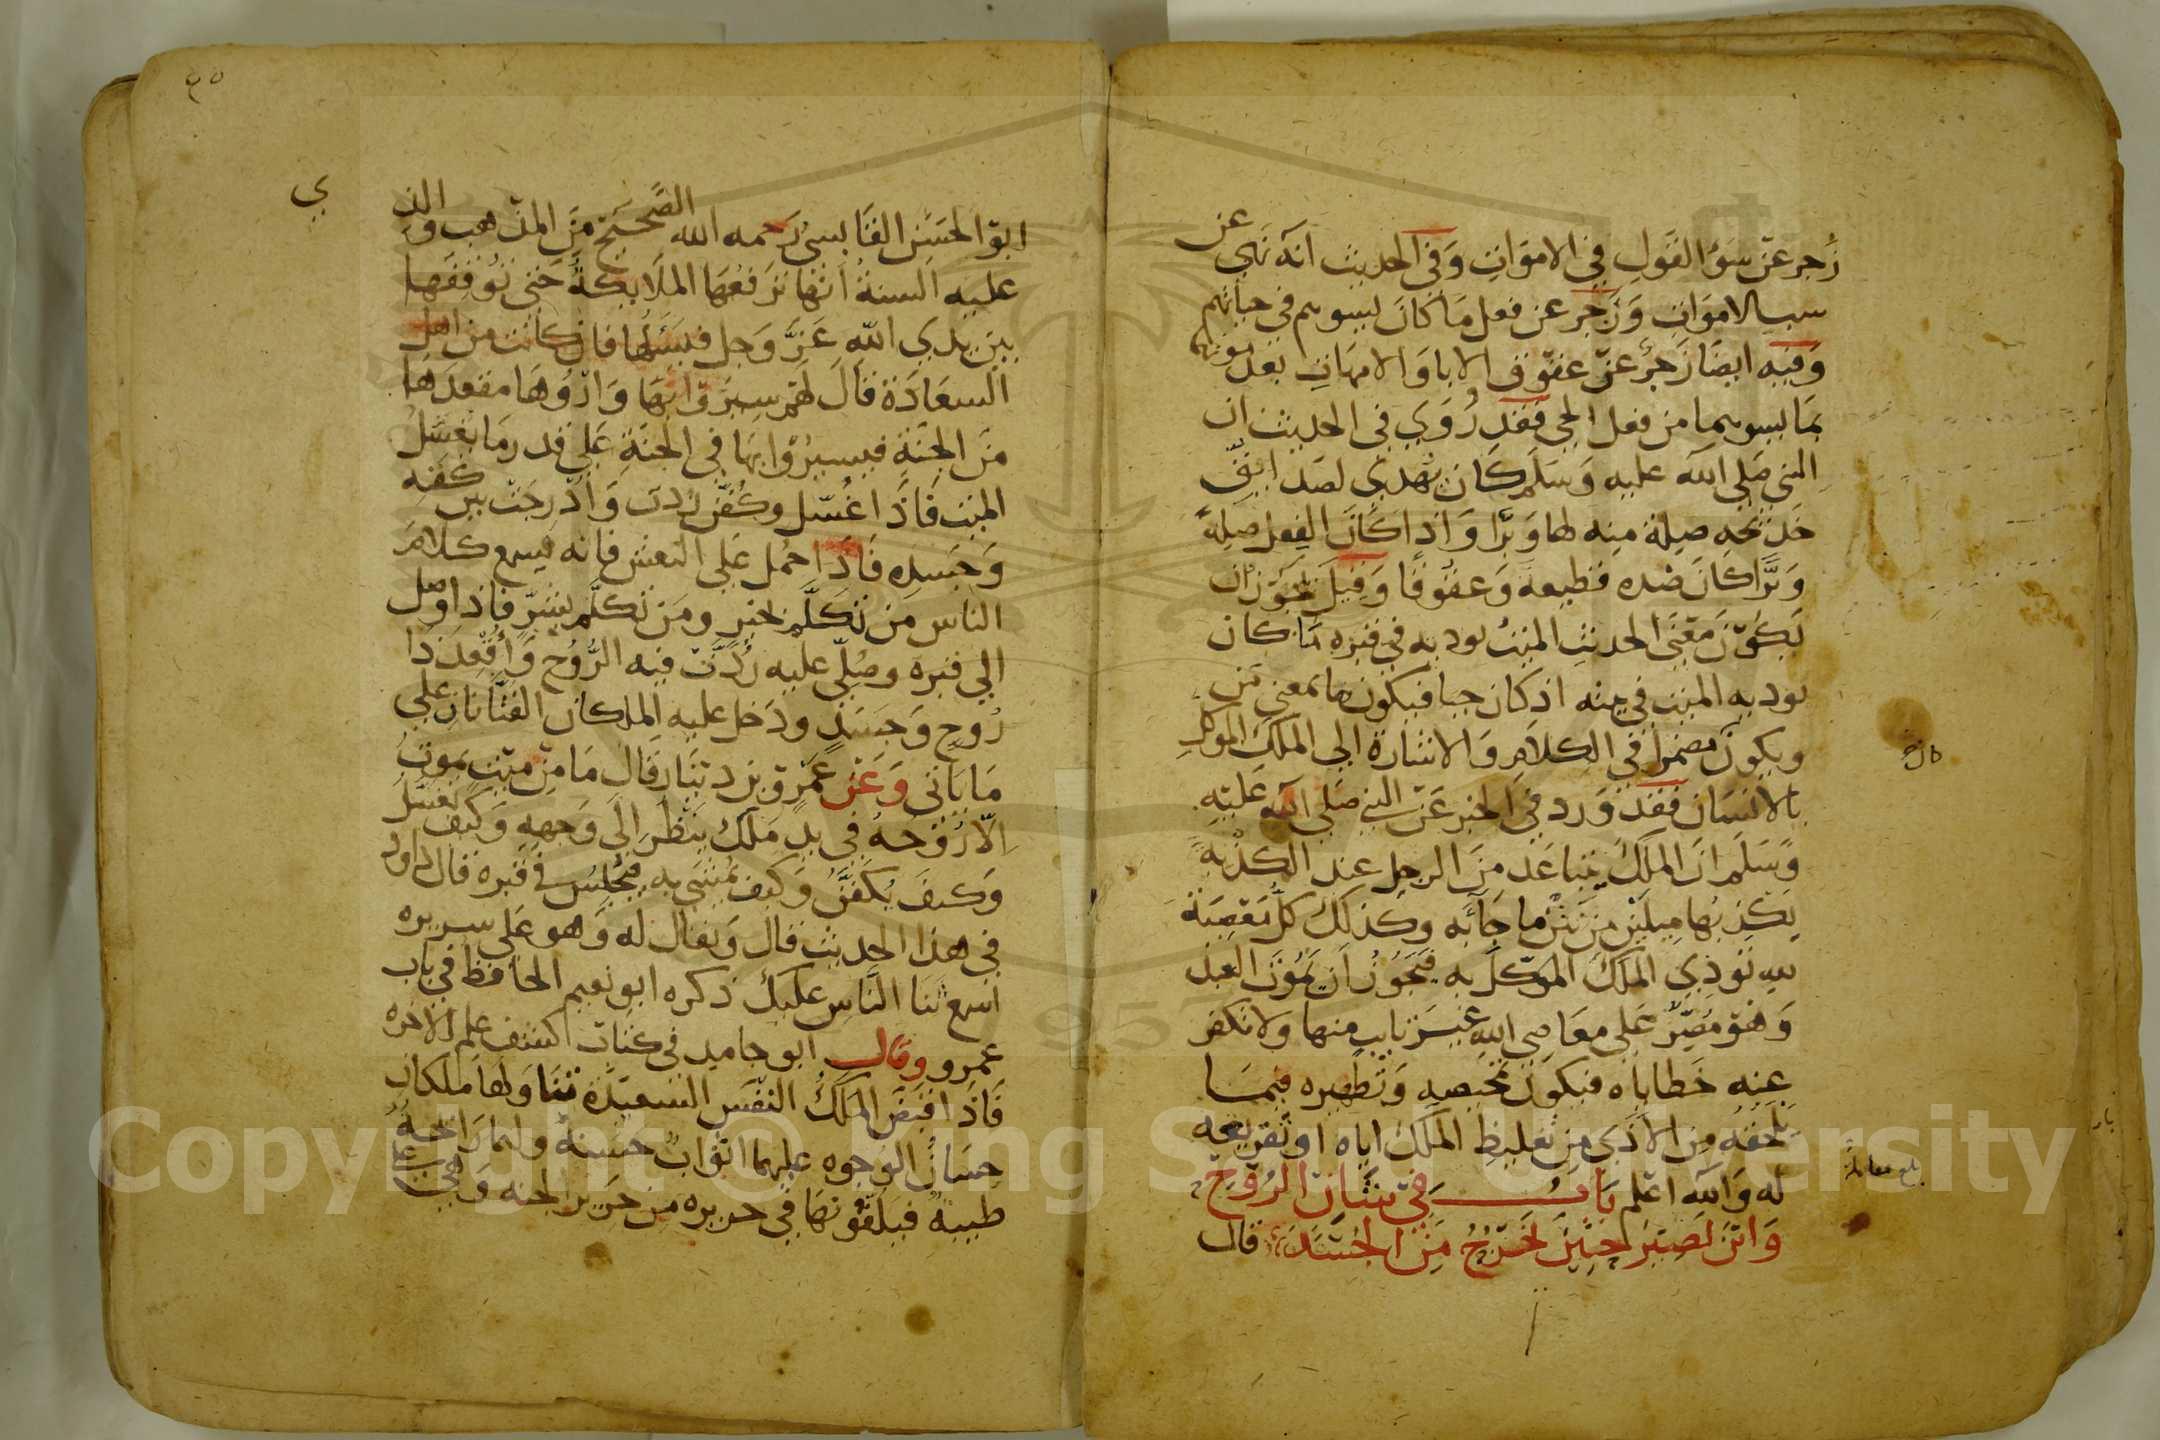 زجر عن سوء القول في الاموات وفي الحديث انه نهى عن
سب الاموات وزجر عن فعل ما كان يسوهم في حياتهم
وفيه ايضا زجر عن عقوق الابا والامهات بعد موتهما
بما يسوهما من فعل الحي فقد روي في الحديث ان
النبي صلى الله عليه وسلم كان يهدي لصدايق
خديجه صلة منه لها وبرا واذا كان الفعل صلة
وبرا كان ضده قطيعه وعقوقا وقيل يجوز ان
يكون معنى الحديث الميت يوديه في قبره ما كان
يوديه الميت في بيته اذ كان حيا فيكون ما بمعنى من
ويكون مضمرا في الكلام والاشارة الى الملك الموكل
بالانسان فقد ورد في الخبر عن النبي صلى الله عليه
وسلم ان الملك يتباعد من الرجل عند الكذبة
يكذبها ميلين من نتن ما جا به وكذلك كل معصية
لله توذي الملك الموكل به فيجوز ان يموت العبد
وهو مصر على معاصي الله غير تايب منها ولا تكفر
عنه خطاياه فيكون تمحيصه وتطهيره فيما
يلحقه من الاذى من تغليظ الملك اياه او تقريعه
له والله اعلم باب في شان الروح
واين تصير حين تخرج من الجسد قال
بلغ مقابلة
٩٥
ابو الحسن القابسي رحمه الله الصحيح من المذهب والذي
عليه السنة انها ترفعها الملايكة حتى توقفها
بين يدي الله عز وجل فيسئلها فان كانت من اهل
السعادة قال لهم سيروا بها واروها مقعدها
من الجنة فيسيروا بها في الجنة على قدر ما يغسل
الميت فاذا غسل وكفن ردت وادرجت بين كفنه
وجسده فاذا حمل على النعش فانه يسمع كلام
الناس من تكلم بخير ومن تكلم بشر فاذا وصل
الى قبره وصلي عليه ردت فيه الروح واقعد ذا
روح وجسد ودخل عليه الملكان الفتانان على
ما ياتي وعن عمرو بن دينار قال ما من ميت يموت
الا روحه في يد ملك ينظر الى وجهه وكيف يغسل
وكيف يكفن وكيف يمشى به فيجلس في قبره قال داود
في هذا الحديث قال ويقال له وهو على سريره
اسمع ثنا الناس عليك ذكره ابو نعيم الحافظ في باب
عمرو وقال ابو حامد في كتاب كشف علم الاخره
فاذا قبض الملك النفس السعيدة تناولها ملكان
حسان الوجوه عليهما اثواب حسنة ولهما رايحة
طيبة فيلفونها في حريره من حرير الجنه وهي على
Copyright © King Saud University